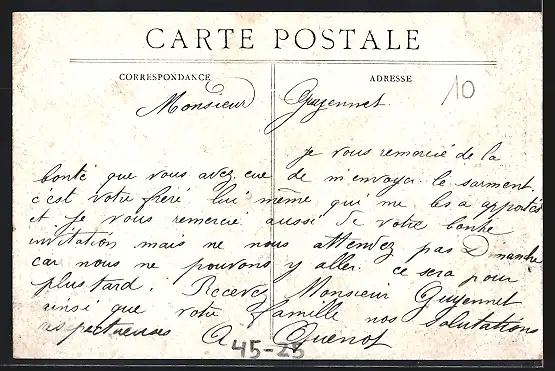 CARTE POSTALE
CORRESPONDANCE
ADRESSE
10
Monsieur Guyennet
je vous remercié de la
bonté que vous avez eue de m'envoyer le sarment.
c'est votre frère lui même qui me les a apportés
et je vous remercié aussi de votre bonne
invitation mais ne nous attendez pas Dimanche
car nous ne pouvons y aller. ce sera pour
plus tard. Recevez Monsieur Guyennet
ainsi que votre famille nos Salutations
respectueuses A Guenot
45-25